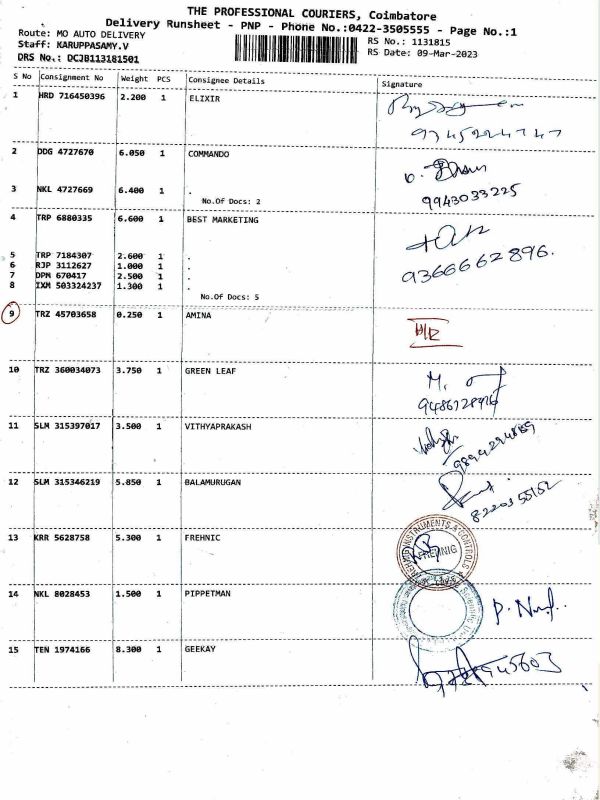 THE PROFESSIONAL COURIERS, Coimbatore
Delivery Runsheet - PNP - Phone No.:0422-3505555 - Page No.:1
Route: MO AUTO DELIVERY
Staff: KARUPPASAMY.V
DRS No.: DCJB113181501
RS No.: 1131815
RS Date: 09-Mar-2023
S No Consignment No Weight PCS Consignee Details Signature
1 HRD 716450396 2.200 1 ELIXIR
2 DDG 4727670 6.050 1 COMMANDO
3 NKL 4727669 6.400 1 .
No.Of Docs: 2
9943033225
4 TRP 6880335 6.600 1 BEST MARKETING
5 TRP 7184307 2.600 1 .
6 RJP 3112627 1.000 1 .
7 DPM 670417 2.500 1 .
8 IXM 503324237 1.300 1 .
No.Of Docs: 5
9366662896.
9 TRZ 45703658 0.250 1 AMINA
10 TRZ 360034073 3.750 1 GREEN LEAF
11 SLM 315397017 3.500 1 VITHYAPRAKASH
12 SLM 315346219 5.850 1 BALAMURUGAN
13 KRR 5628758 5.300 1 FREHNIC
INSTRUMENTS & CONTROLS
14 NKL 8028453 1.500 1 PIPPETMAN
15 TEN 1974166 8.300 1 GEEKAY